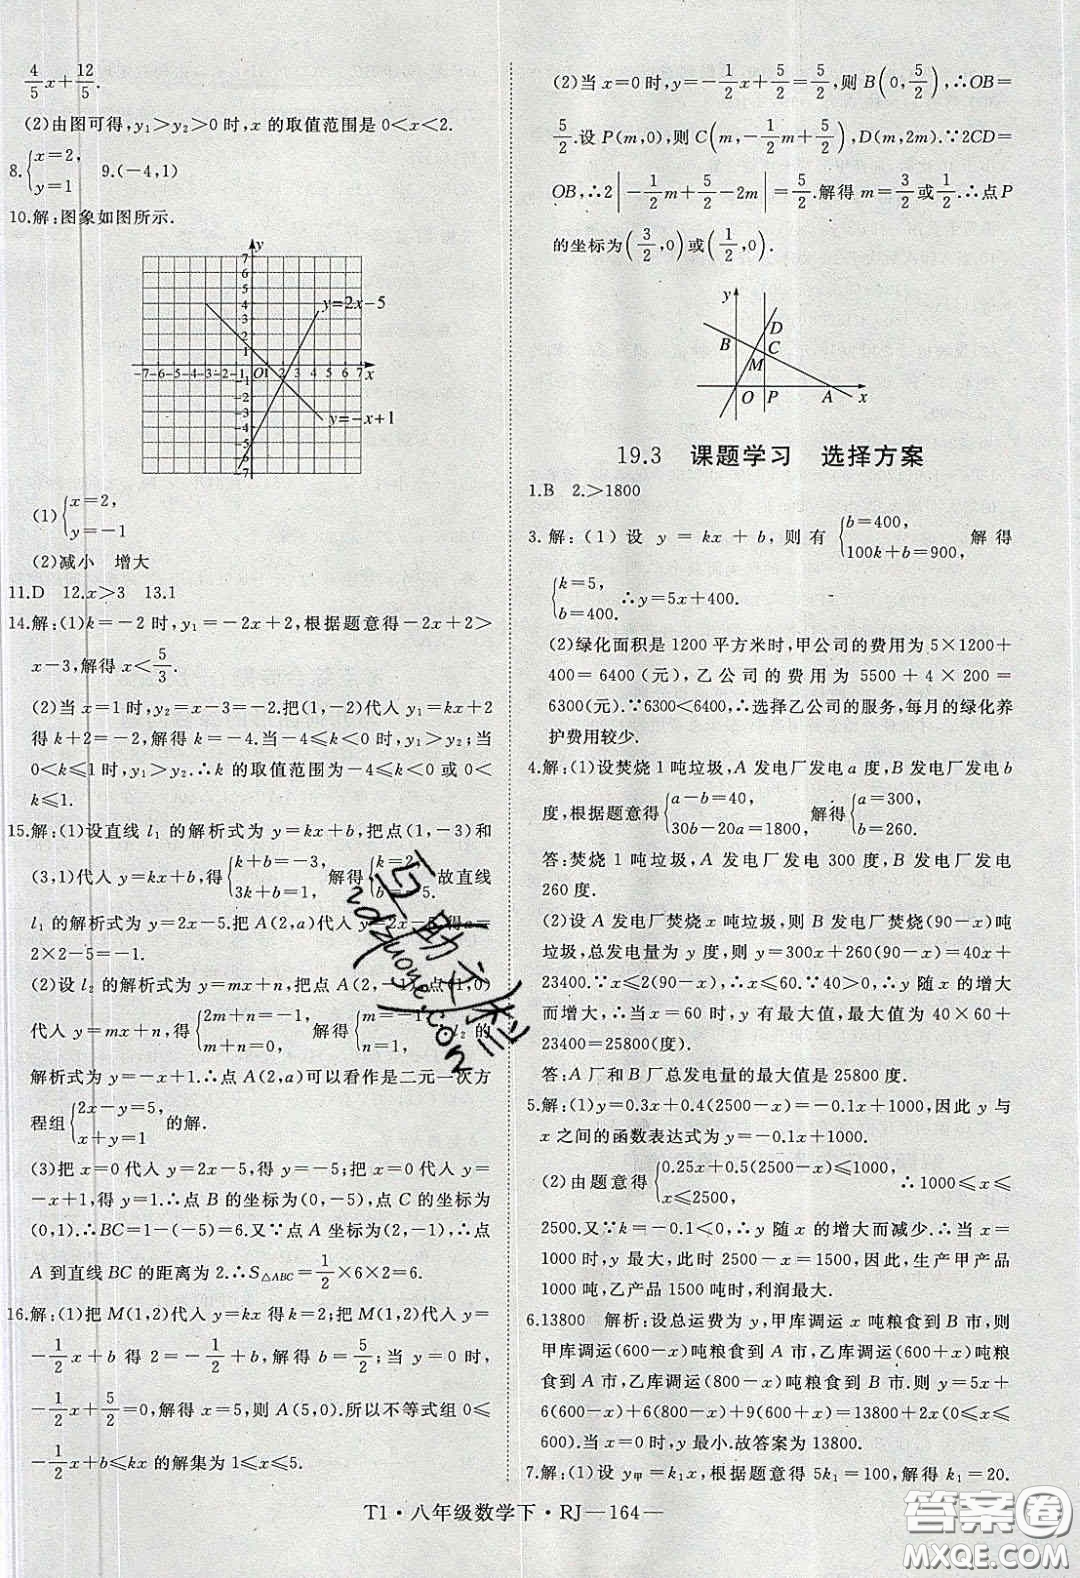 4/5x+12/5.
(2)由图可得,y₁>y₂>0时,x的取值范围是0<x<2.
8.{x=2, y=1  9.(-4,1)
10.解:图象如图所示.
y
y=2x-5
-7-6-5-4-3-2-1 O 1 2 3 4 5 6 7 x
y=-x+1
(1){x=2, y=-1
(2)减小 增大
11.D 12.x>3 13.1
14.解:(1)k=-2时,y₁=-2x+2,根据题意得-2x+2>
x-3,解得x<5/3.
(2)当x=1时,y₂=x-3=-2.把(1,-2)代入y₁=kx+2
得k+2=-2,解得k=-4.当-4≤k<0时,y₁>y₂;当
0<k≤1时,y₁>y₂.∴k的取值范围为-4≤k<0或0<
k≤1.
15.解:(1)设直线l₁的解析式为y=kx+b,把点(1,-3)和
(3,1)代入y=kx+b,得{k+b=-3, 3k+b=1, 解得{k=2, b=-5. 故直线
l₁的解析式为y=2x-5.把A(2,a)代入y=2x-5,得a=
2×2-5=-1.
(2)设l₂的解析式为y=mx+n,把点A(2,-1),点(1,0)
代入y=mx+n,得{2m+n=-1, m+n=0, 解得{m=-1, n=1. l₂的
解析式为y=-x+1.∴点A(2,a)可以看作是二元一次方
程组{2x-y=5, x+y=1 的解.
(3)把x=0代入y=2x-5,得y=-5;把x=0代入y=
-x+1,得y=1.∴点B的坐标为(0,-5),点C的坐标为
(0,1).∴BC=1-(-5)=6.又∵点A坐标为(2,-1),∴点
A到直线BC的距离为2.∴S△ABC=1/2×6×2=6.
16.解:(1)把M(1,2)代入y=kx得k=2;把M(1,2)代入y=
-1/2x+b得2=-1/2+b,解得b=5/2;当y=0时,
-1/2x+5/2=0,解得x=5,则A(5,0).所以不等式组0≤
-1/2x+b≤kx的解集为1≤x≤5.
(2)当x=0时,y=-1/2x+5/2=5/2,则B(0,5/2),∴OB=
5/2.设P(m,0),则C(m,-1/2m+5/2),D(m,2m).∵2CD=
OB,∴2|-1/2m+5/2-2m|=5/2.解得m=3/2或1/2.∴点P
的坐标为(3/2,0)或(1/2,0).
y
D
B C
M
O P A x
19.3 课题学习 选择方案
1.B 2.>1800
3.解:(1)设y=kx+b,则有{b=400, 100k+b=900, 解得
{k=5, b=400. ∴y=5x+400.
(2)绿化面积是1200平方米时,甲公司的费用为5×1200+
400=6400(元),乙公司的费用为5500+4×200=
6300(元).∵6300<6400,∴选择乙公司的服务,每月的绿化养
护费用较少.
4.解:(1)设焚烧1吨垃圾,A发电厂发电a度,B发电厂发电b
度,根据题意得{a-b=40, 30b-20a=1800, 解得{a=300, b=260.
答:焚烧1吨垃圾,A发电厂发电300度,B发电厂发电
260度.
(2)设A发电厂焚烧x吨垃圾,则B发电厂焚烧(90-x)吨
垃圾,总发电量为y度,则y=300x+260(90-x)=40x+
23400.∵x≤2(90-x),∴x≤60.∵40>0,∴y随x的增大
而增大,∴当x=60时,y有最大值,最大值为40×60+
23400=25800(度).
答:A厂和B厂总发电量的最大值是25800度.
5.解:(1)y=0.3x+0.4(2500-x)=-0.1x+1000,因此y与
x之间的函数表达式为y=-0.1x+1000.
(2)由题意得{0.25x+0.5(2500-x)≤1000, x≤2500, ∴1000≤x≤
2500.又∵k=-0.1<0,∴y随x的增大而减少.∴当x=
1000时,y最大,此时2500-x=1500,因此,生产甲产品
1000吨,乙产品1500吨时,利润最大.
6.13800 解析:设总运费为y,甲库调运x吨粮食到B市,则
甲库调运(600-x)吨粮食到A市,乙库调运(600+x)吨粮
食到A市,乙库调运(800-x)吨粮食到B市.y=5x+
6(600-x)+6(800-x)+9(600+x)=13800+2x(0≤x≤
600).当x=0时,y最小.故答案为13800.
7.解:(1)设y甲=k₁x,根据题意得5k₁=100,解得k₁=20.
T1·八年级数学下·RJ—164—
互助文档
zdzyone.con
答案圈
MXQE.COM